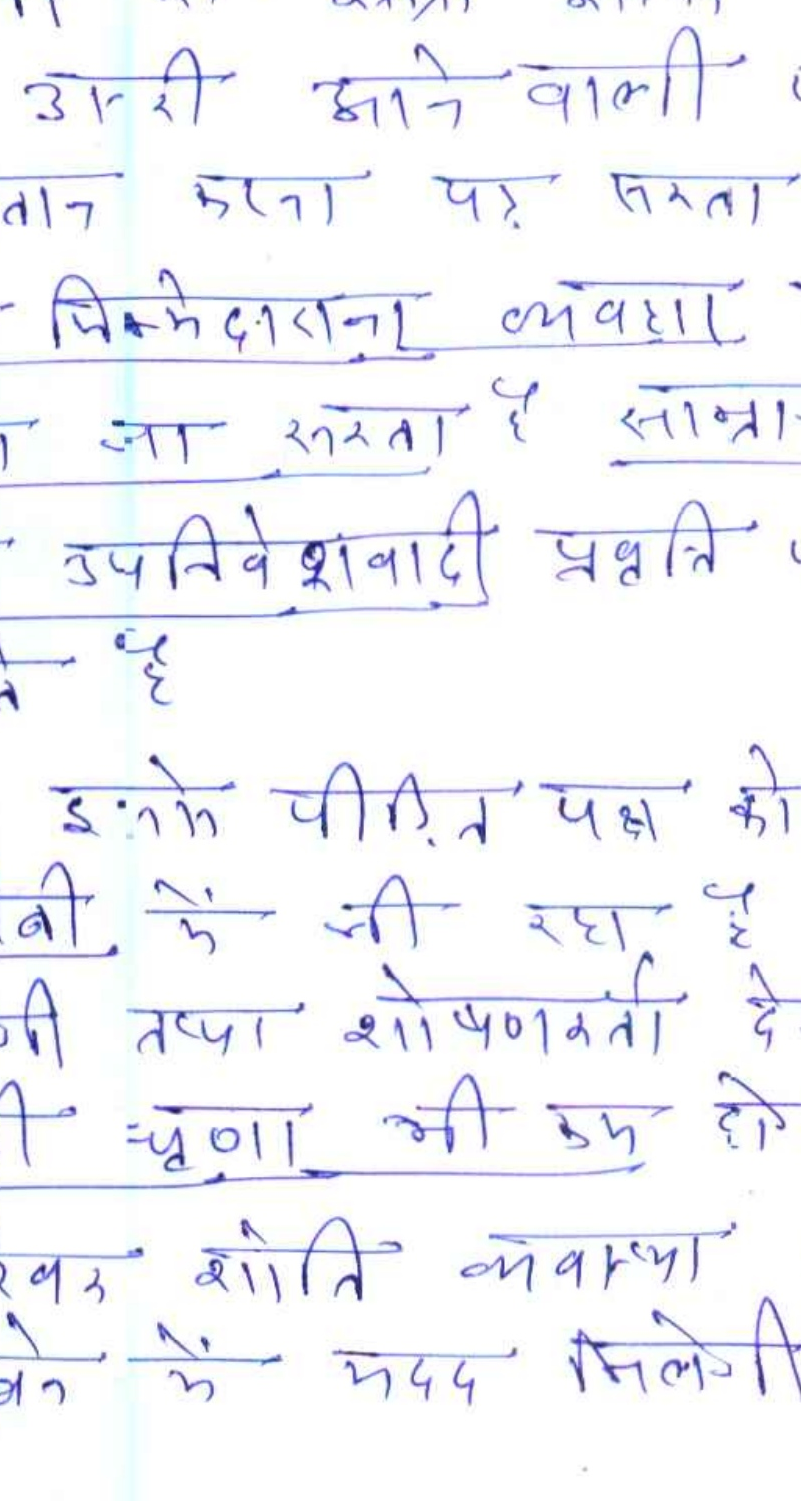 उनकी आने वाली
करना पड़ सकता
जिम्मेदाराना व्यवहार
जा सकता है साम्रा
उपनिवेशवादी प्रवृत्ति
है
इनके पीड़ित पक्ष को
में जी रहा है
तथा शोषणकर्ता दे
घृणा भी कम हो
शांति व्यवस्था
में मदद मिलेगी